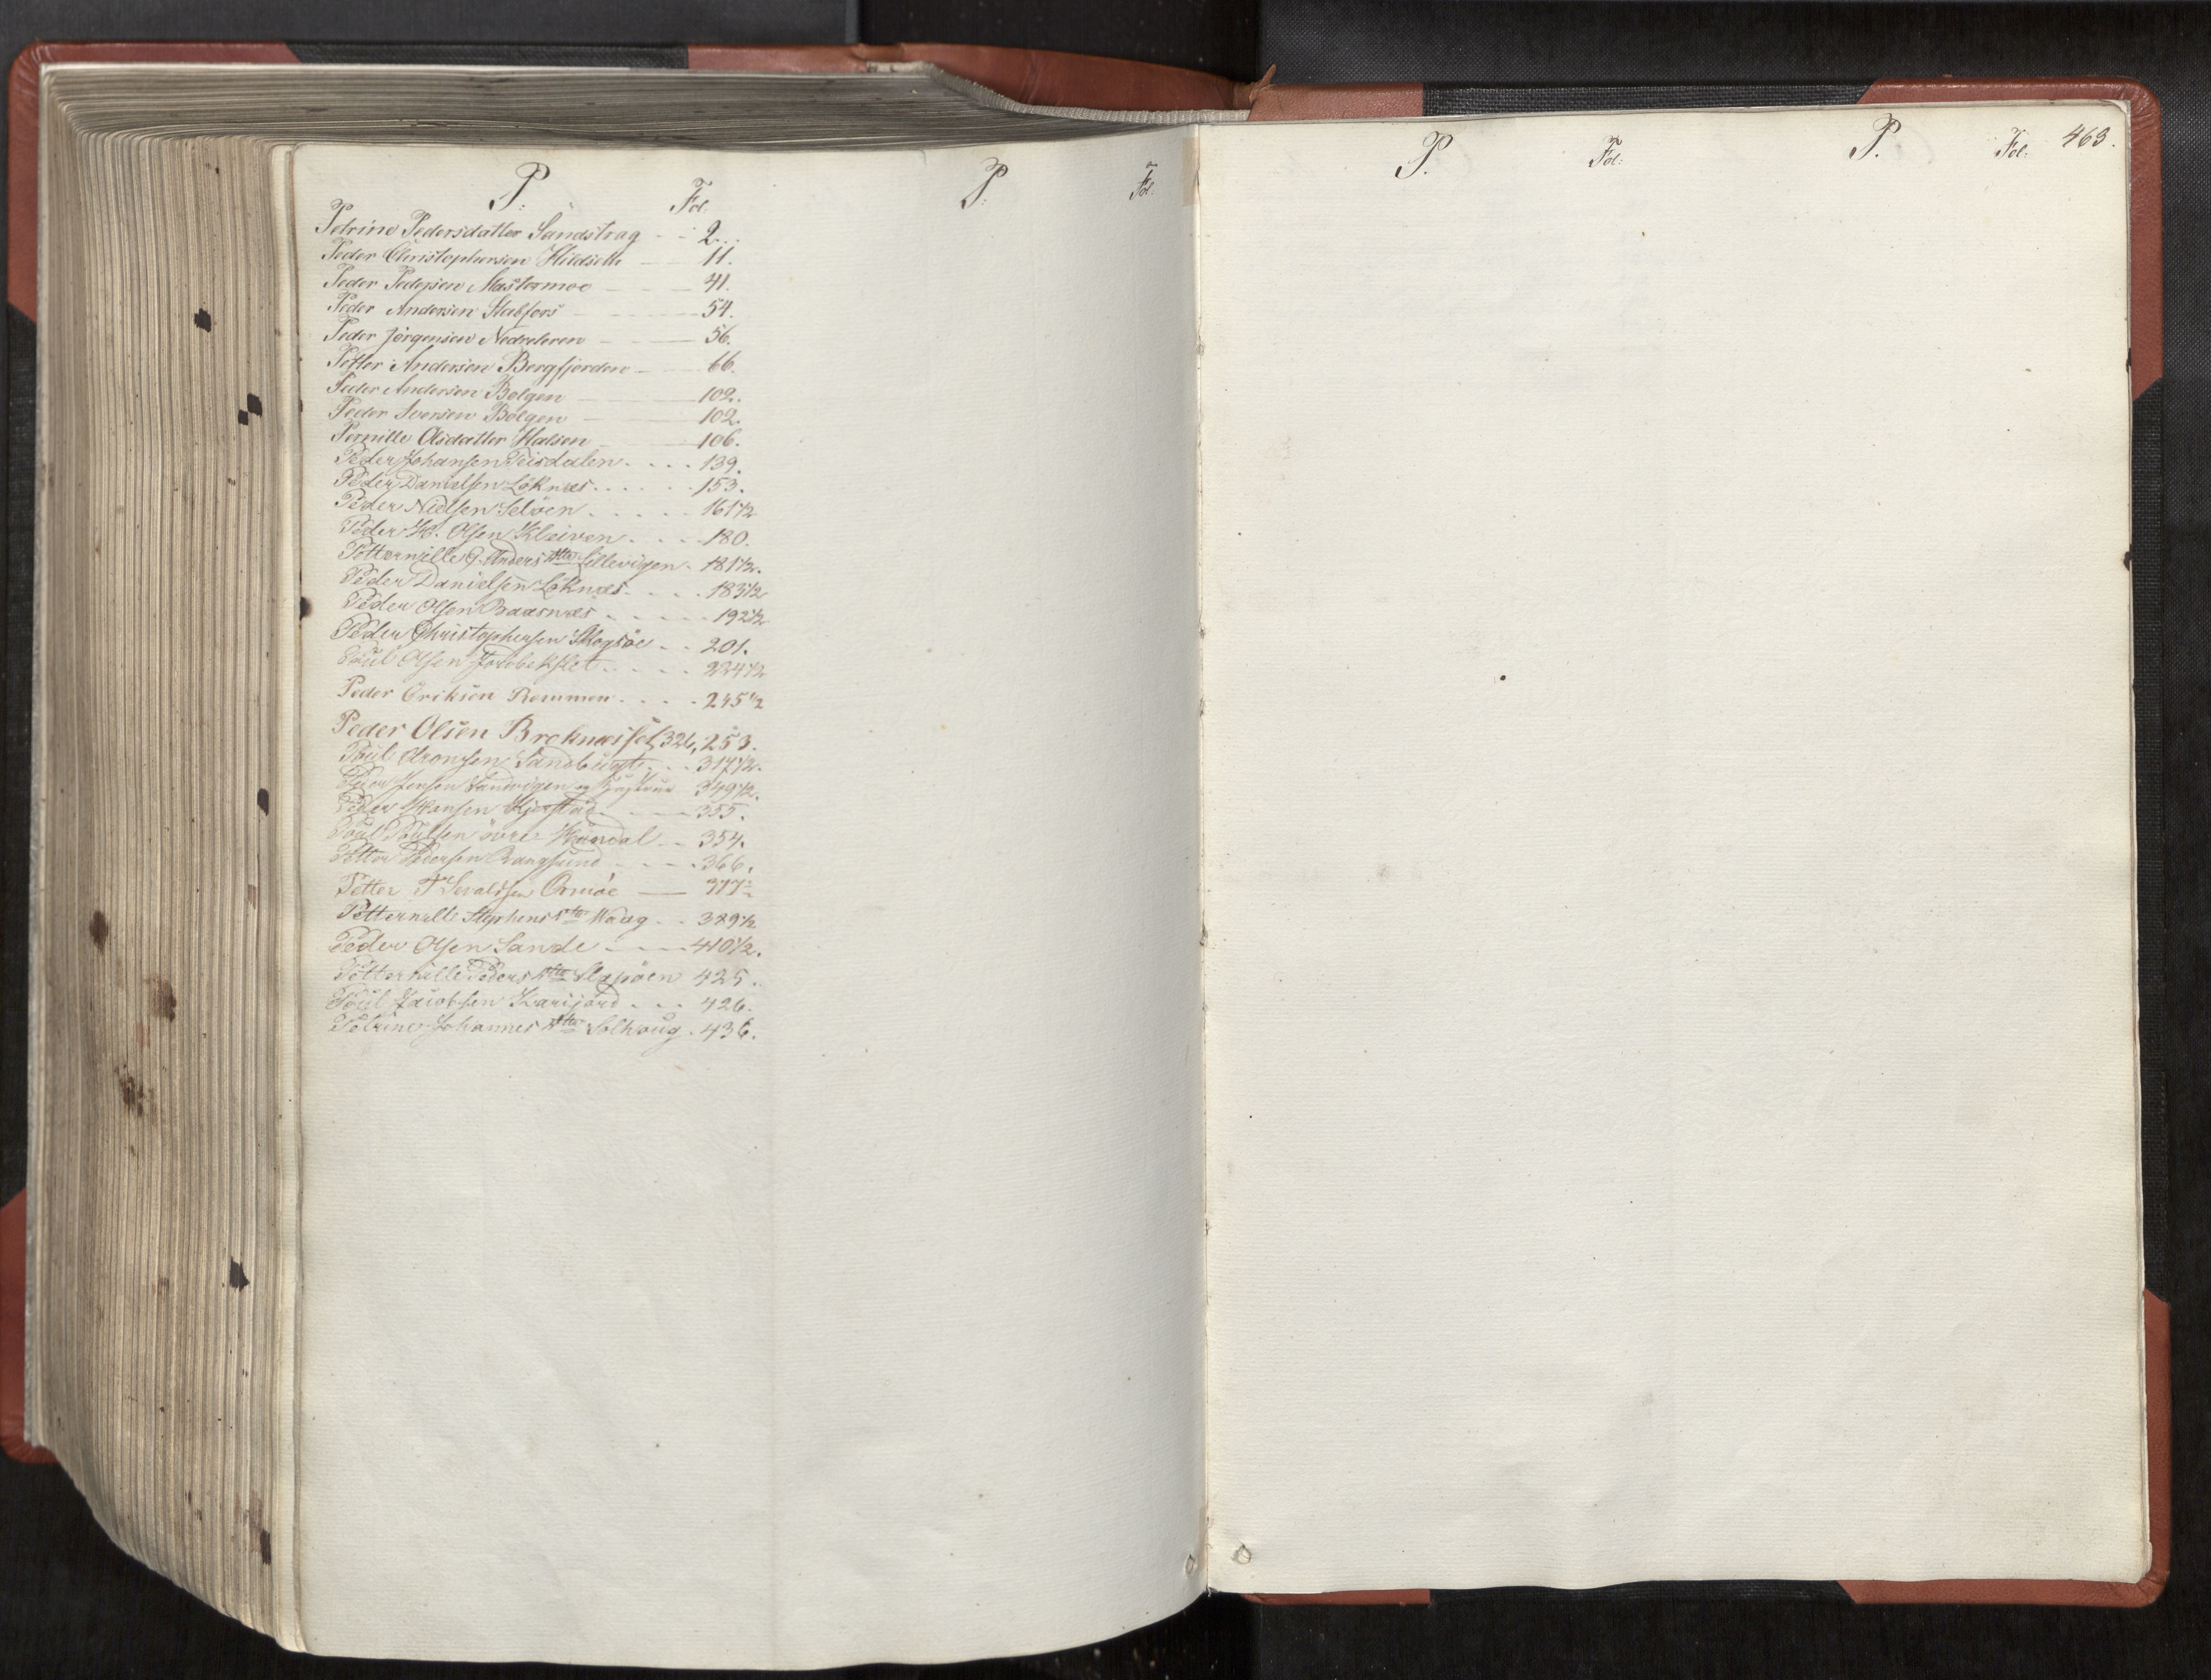 P.
Fol.
Petrine Pedersdatter Sandstrag - - 2.
Peder Christophersen Hildseth - 11.
Peder Pedersen Mastermoe - - 41.
Peder Andersen Stabfors - - 54.
Peder Jörgensen Nedreleren - - 56.
Petter Andersen Bergfjorden - - 66.
Peder Andersen Bolgen - 102.
Peder Iversen Bolgen - 102.
Pernille Olsdatter Halsen - 106.
Peder Johansen Teisdalen . . . . 139.
Peder Danielsen Löknæs . . . . . 153.
Peder Nielsen Selöen . . . . . 161 1/2
Peder H. Olsen Kleiven . . . . 180.
Petternille G. Anders dtter Lillevigen . 181 1/2.
Peder Danielsen Löknæs . . . . 183 1/2
Peder Olsen Baasnæs . . . . . 192 1/2
Peder Christophersen Skogsöe . . 201.
Poul Olsen . . . . . 224 1/2
Peder Eriksen Remmen . . . . 245 1/2
Peder Olsen Broknæsset 326, 253.
Poul Aronsen Sandbugt . . . 317 1/2.
Peder Jensen Sandvigen og Hustrue 349 1/2.
Peder Hansen Kjerstad - - 355.
Poul Poulsen övre - - 354.
Petter Pedersen Rangsund - - - 366.
Petter T Sevaldsen Ormöe — 377
Petternelle Stephens dtter Waag . . 389 1/2
Peder Olsen Sande - - - 410 1/2.
Petternille Peders dtter Slapöen 425.
Poul Jacobsen Karijord . . . 426.
Petrine Johannes dtter Solhoug . 436.
P.
Fol.
P.
Fol:
P.
Fol:
463.